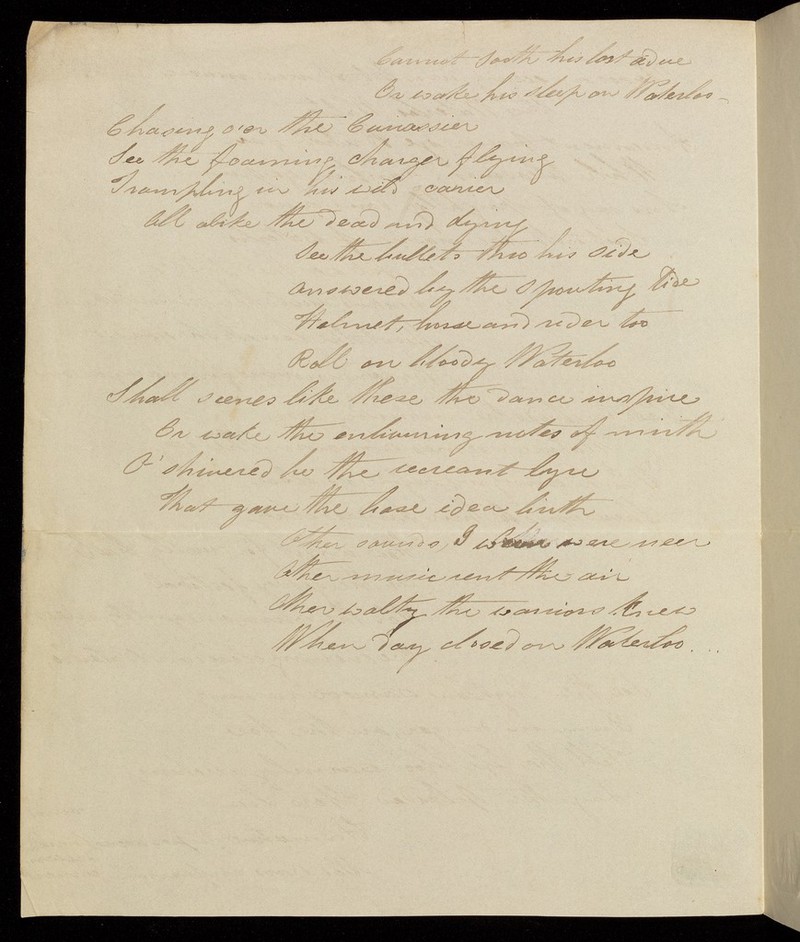 Cannot sooth his lost adue
Or wake his sleep on Waterloo -
Chasing o'er the Cuirassier
See the foaming charger flying
Trampling in his wild carier
All alike the dead and dying
See the bullets thro his side
answered by the spouting Tide
Helmet, horse and rider too
Roll on bloody Waterloo
Shall scenes like these the dance inspire
Or wake the enlivening notes of mirth
O' shivered be the recreant lyre
That gave the base idea birth
Other sounds I ween were neer
Other music rent the air
Other waltz the warriors knew
When day closed on Waterloo...